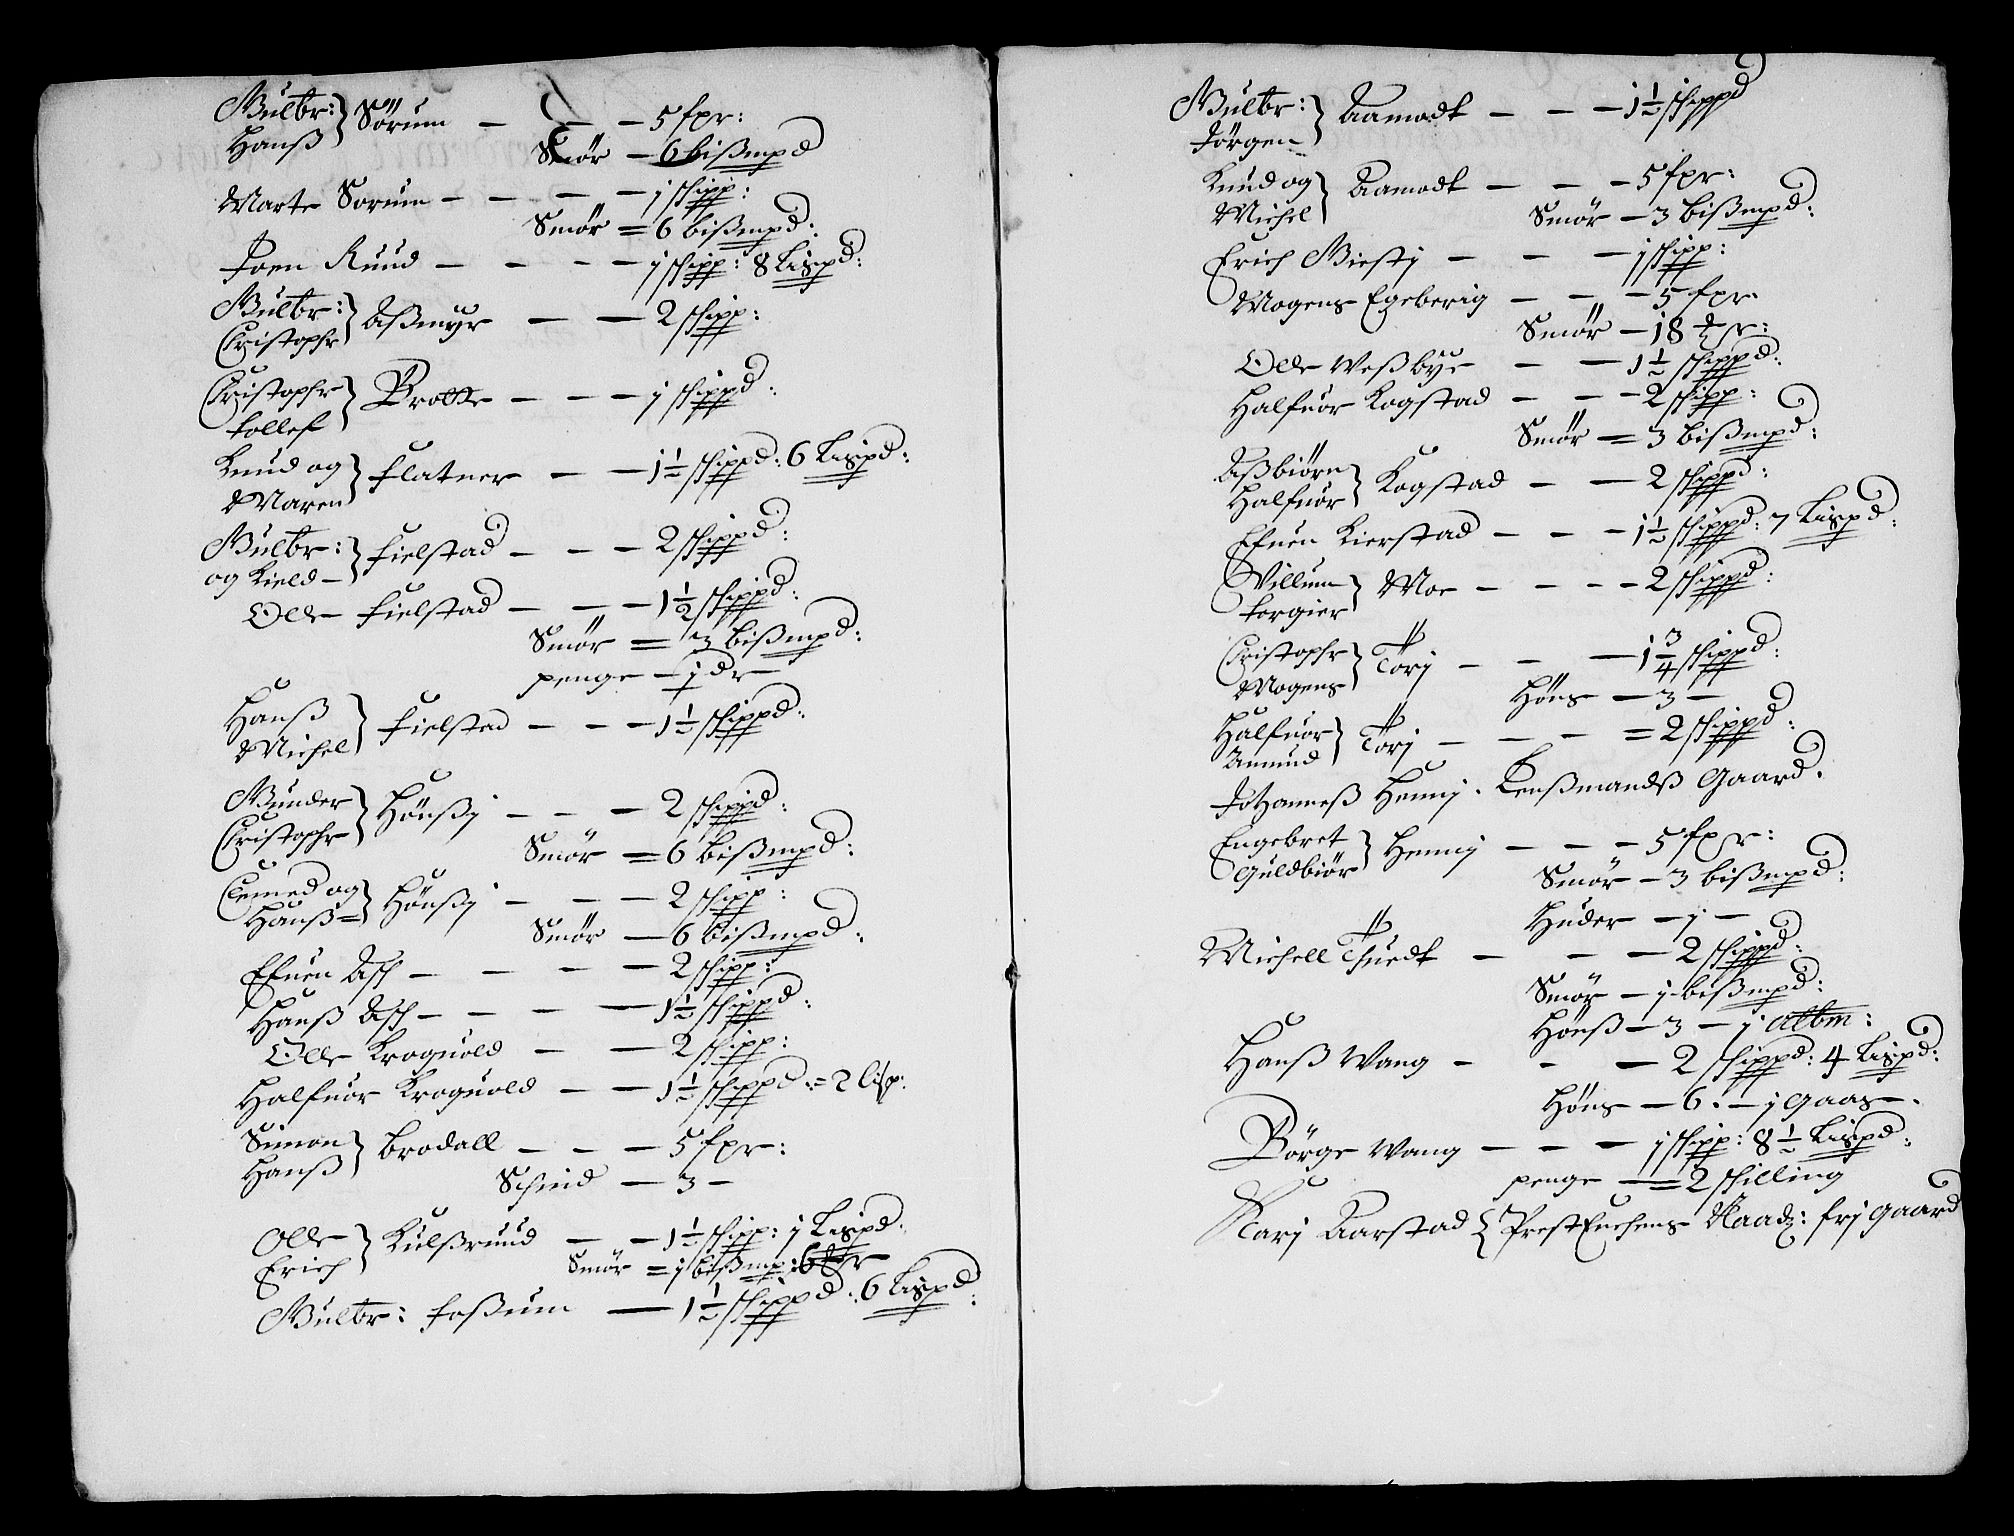 Gulbr: } Sörum — — — 5 fxr:
Hanß
Smör — 6 bißmpd
Marte Sorum — — — — j schipp:
Smör = 6 bißmpd:
Joen Ruud — — — — j schipp: 8 Lispd:
Gulbr: } Aßmyr — — 2 schipp:
Christophr
Christophr } Brotte — — — j schippd:
Tollef
Knud og } Flatner — — 1½ schippd: 6 Lispd:
Maren
Gulbr: } Fielstad — — — 2 schippd:
og Kield —
Olle Fielstad — — — 1½ schippd:
Smör = 3 bißmpd:
penge — j dr —
Hanß } Fielstad — — — 1½ schippd:
Michel
Gunder } Hönßj — — — 2 schippd:
Christophr
Smör = 6 bißmpd:
Emed og } Hönßj — — — 2 schipp:
Hanß =
Smör — 6 bißmpd:
Efuen Asch — — — — 2 schipp:
Hanß Asch — — — — 1½ schippd:
Olle Kroguold — — 2 schipp:
Halfuor Kroguold — — 1½ schippd: = 2 lisp:
Simon } Brodall — — — 5 fxr:
Hanß
Schind — 3 —
Olle } Kulßruud — — 1½ schipp: j Lispd:
Erich
Smör = j bißmp:
Gulbr: Foßum — 1½ schippd: 6 Lispd:
Gulbr: } Aamodt — — — 1½ schippd
Jörgen
Knud og } Aamodt — — — 5 fxr:
Michel
Smör — 3 bißmpd:
Erich Giestj — — — j schipp:
Mogens Egeberig — — — 5 fxr
Smör — 18
Olle Weßbye — — 1½ schippd:
Halfuor Kogstad — — — 2 schipp:
Smör = 3 bißmpd:
Aßbiörn } Kogstad — — 2 schippd:
Halfuor
Efuen Kierstad — — — 1½ schippd: 7 Lispd:
Villum } Moe — — — — 2 schippd:
Torgier
Christophr } Torj — — — 1¾ schippd:
Mogens
Höns — 3 —
Halfuor } Torj — — — = 2 schippd:
Amund
Johanneß Hennj. Lenßmandß Gaard.
Engebret } Hennj — — — 5 fxr:
Guldbiör
Smör — 3 bißmpd:
Huder — j —
Michell Thuedt — — — 2 schippd:
Smör — j bißmpd:
Hönß — 3 — j albm:
Hanß Wang — — — 2 schippd: 4 Lispd:
Höns — 6. — j Gaas —.
Börge Wang — — — j schipp: 8½ Lispd:
penge — = 2 schilling
Karj Aarstad { PrestEnchens Naadz: frj Gaard